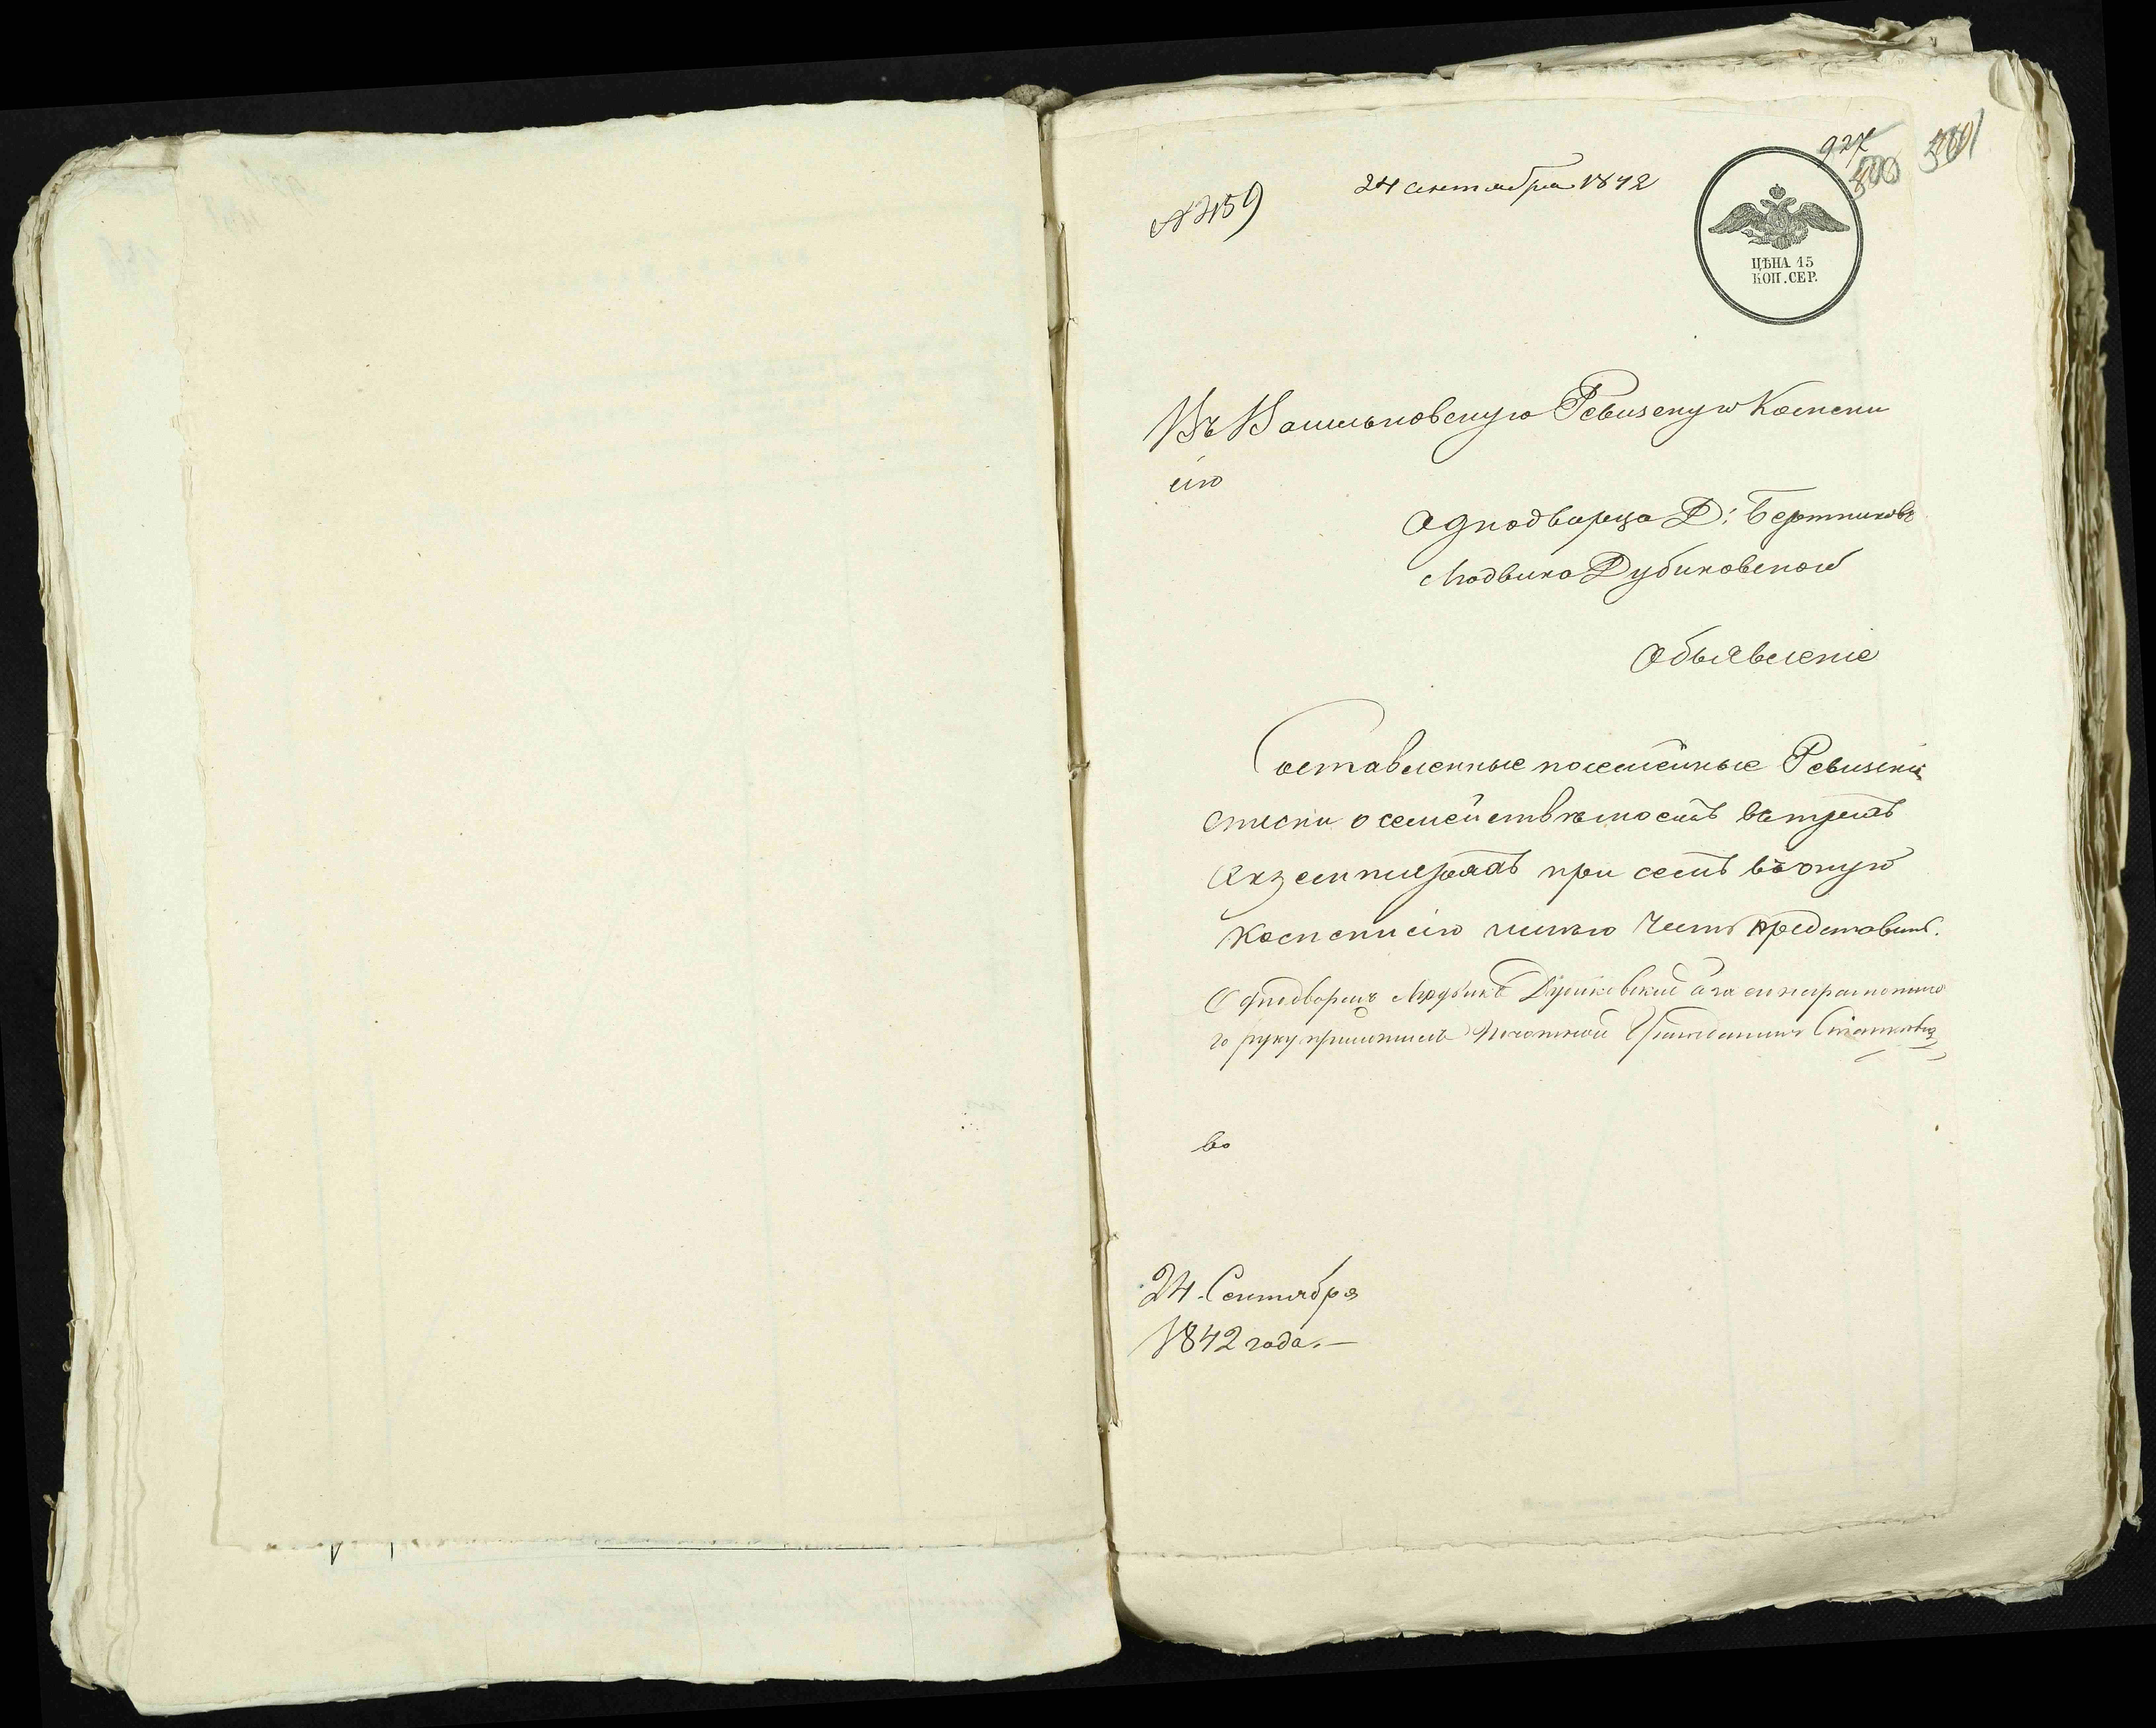 927
500 501
№ 459
24 сентября 1842
ЦѢНА 15
КОП. СЕР.
Въ Васильковскую Ревизскую Комми
сію
Однодворца Д: Бертниковъ
Людвика Дубиковской
Объявленіе
Составленные посемейные Ревизскіе
списки о семействѣ моемъ въ трехъ
екземплярахъ при семъ въ оную
Коммисію имѣю честь представить.
Однодворецъ Людвикъ а за его неграмотнаго
го руку приложилъ Гражданинъ
во
24. Сентября
1842 года. —